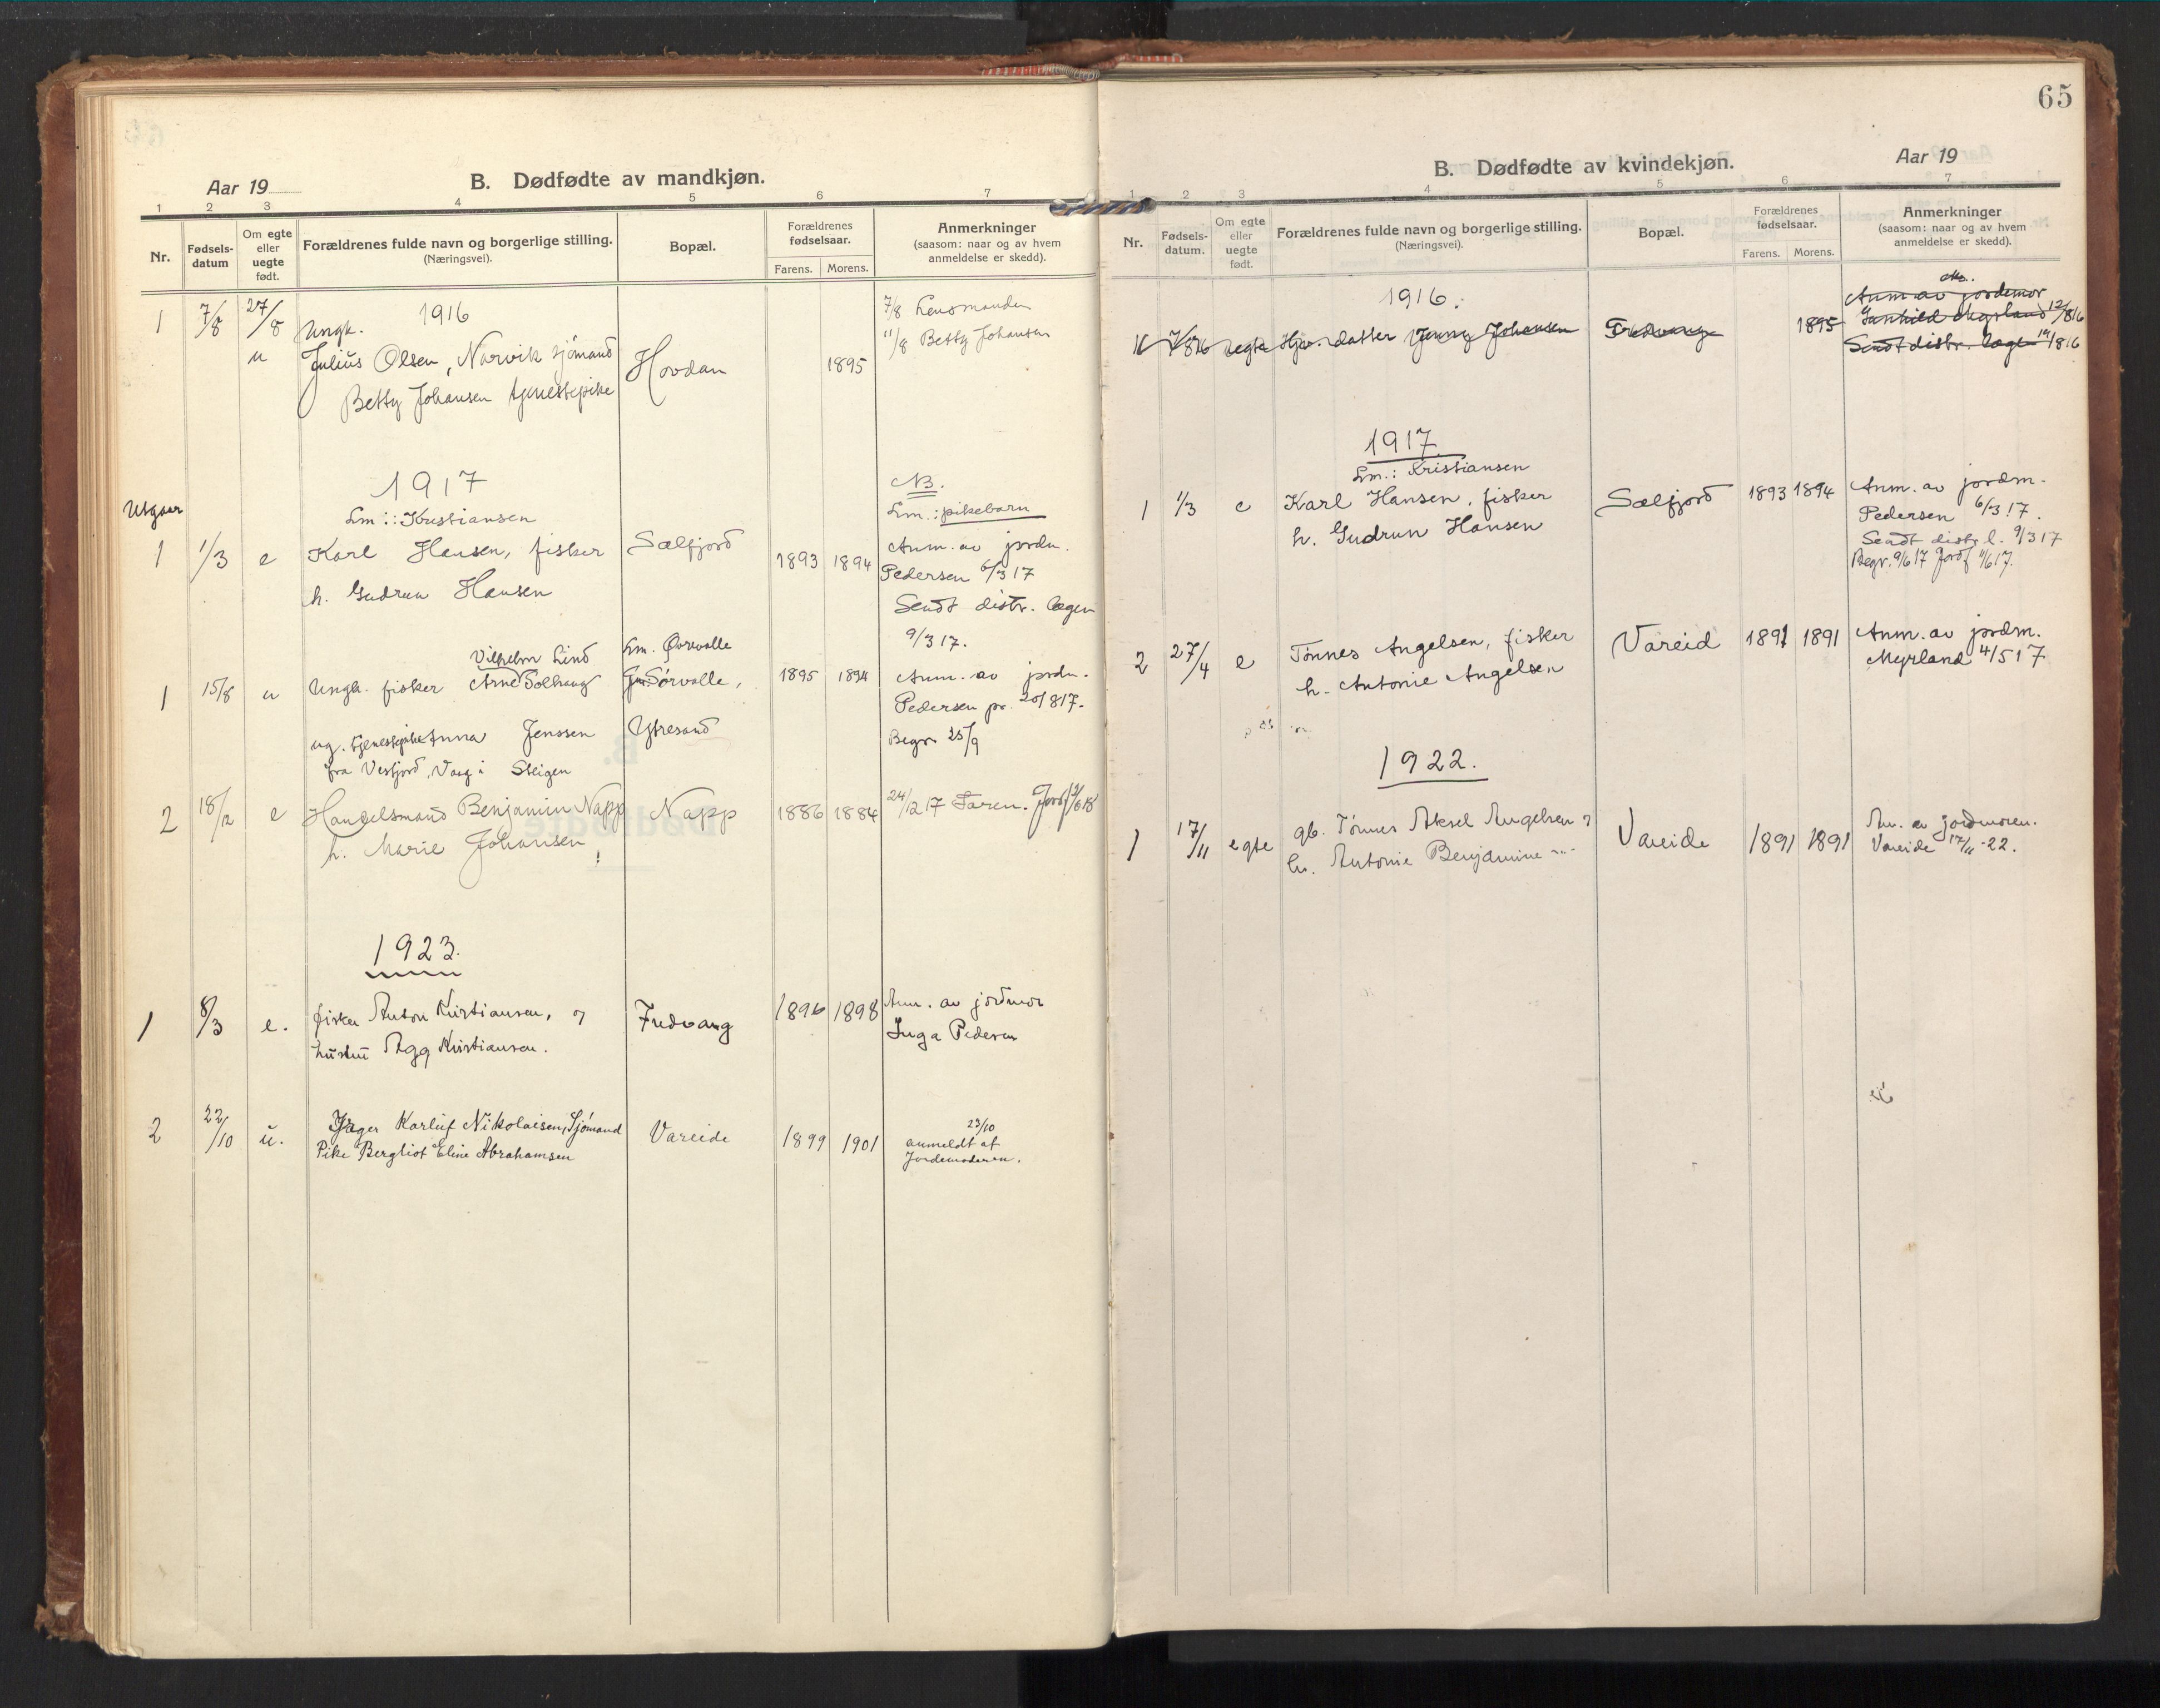 65
Aar 19
B. Dødfødte av mandkjøn.
1 2 3 4 5 6 7
Nr.
Fødsels-
datum
Om egte
eller
uegte
født.
Forældrenes fulde navn og borgerlige stilling.
(Næringsvei).
Bopæl.
Forældrenes
fødselsaar.
Farens. Morens.
Anmerkninger
(saasom: naar og av hvem
anmeldelse er skedd).
1916
1 7/8 27/8 Ungk.
u Julius Olsen, Narvik sjómand
Betty Johansen tjenestepike
Hovdan 1895
7/8 Lensmanden
11/8 Betty Johansen
1917
Utgaar
Lm.: Kristiansen
NB.
Lm.: pikebarn
1 1/3 e Karl Hansen, fisker Sælfjord 1893 1894
h. Gudrun Hansen
Anm. av jordm.
Pedersen 6/3 17
Sendt distr. lægen
9/3 17.
Vilhelm Lind Lm. Övrevolle
1 15/8 u Ungk. fisker Arne Solhaug Sörvolle, 1895 1894
ug. tjenestepike Anna Jenssen Ytresand
fra Vesfjord, Vaag i Steigen
Anm. av jordm.
Pedersen pr. 20/8 17.
Begr. 25/9
2 18/2 e Handelsmand Benjamin Napp Napp 1886 1884
h. Marie Johansen
24/2 17 Faren.
1923.
1 8/3 e. fisker Anton Kristiansen, og Fredvang 1896 1898
hustru Agg Kristiansen.
Anm. av jordmor
Inga Pedersen
2 22/10 u. Karluf Nikolaisen, Sjómand Vareide 1899 1901
Pike Bergliot Eline Abrahamsen
23/10
anmeldt af
Jordemoderen.
B. Dødfødte av kvindekjøn.
Aar 19
1 2 3 4 5 6 7
Nr.
Fødsels-
datum.
Om egte
eller
uegte
født.
Forældrenes fulde navn og borgerlige stilling.
(Næringsvei).
Bopæl.
Forældrenes
fødselsaar.
Farens. Morens.
Anmerkninger
(saasom: naar og av hvem
anmeldelse er skedd).
1916.
1 7/8 16 uegte datter Jenny Johansen Fredvang 1895
Anm. av jordemor
Gunhild Myrland 12/8 16
Sendt distr. læge 14/8 16
1917
Lm.: Kristiansen
1 1/3 e Karl Hansen, fisker Sælfjord 1893 1894
h. Gudrun Hansen
Anm. av jordm.
Pedersen 6/3 17.
Sendt distr. l. 9/3 17
Begr. 9/6 17 Jordf. 11/6 17.
2 27/4 e Tönnes Angelsen, fisker Vareid 1891 1891
h. Antonie Angelsen
Anm. av jordm.
Myrland 4/5 17
1922.
1 17/11 egte gb. Tönnes Aksel Angelsen og Vareide 1891 1891
h. Antonie Benjamine -"-
An. av jordmoren.
Vareide 17/11-22.